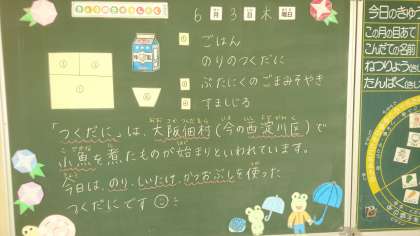 きょうのきゅうしょく
6月3日木曜日
ごはん
のりのつくだに
ぶたにくのごまみそやき
すましじる
「つくだに」は、大阪佃村(今の西淀川区)で
小魚を煮たものが始まりといわれています。
今日は、のり、しいたけ、かつおぶしを使った
つくだです
今日のきゅう
この月の目あて
こんだての名前
ねつりょう
たんぱく